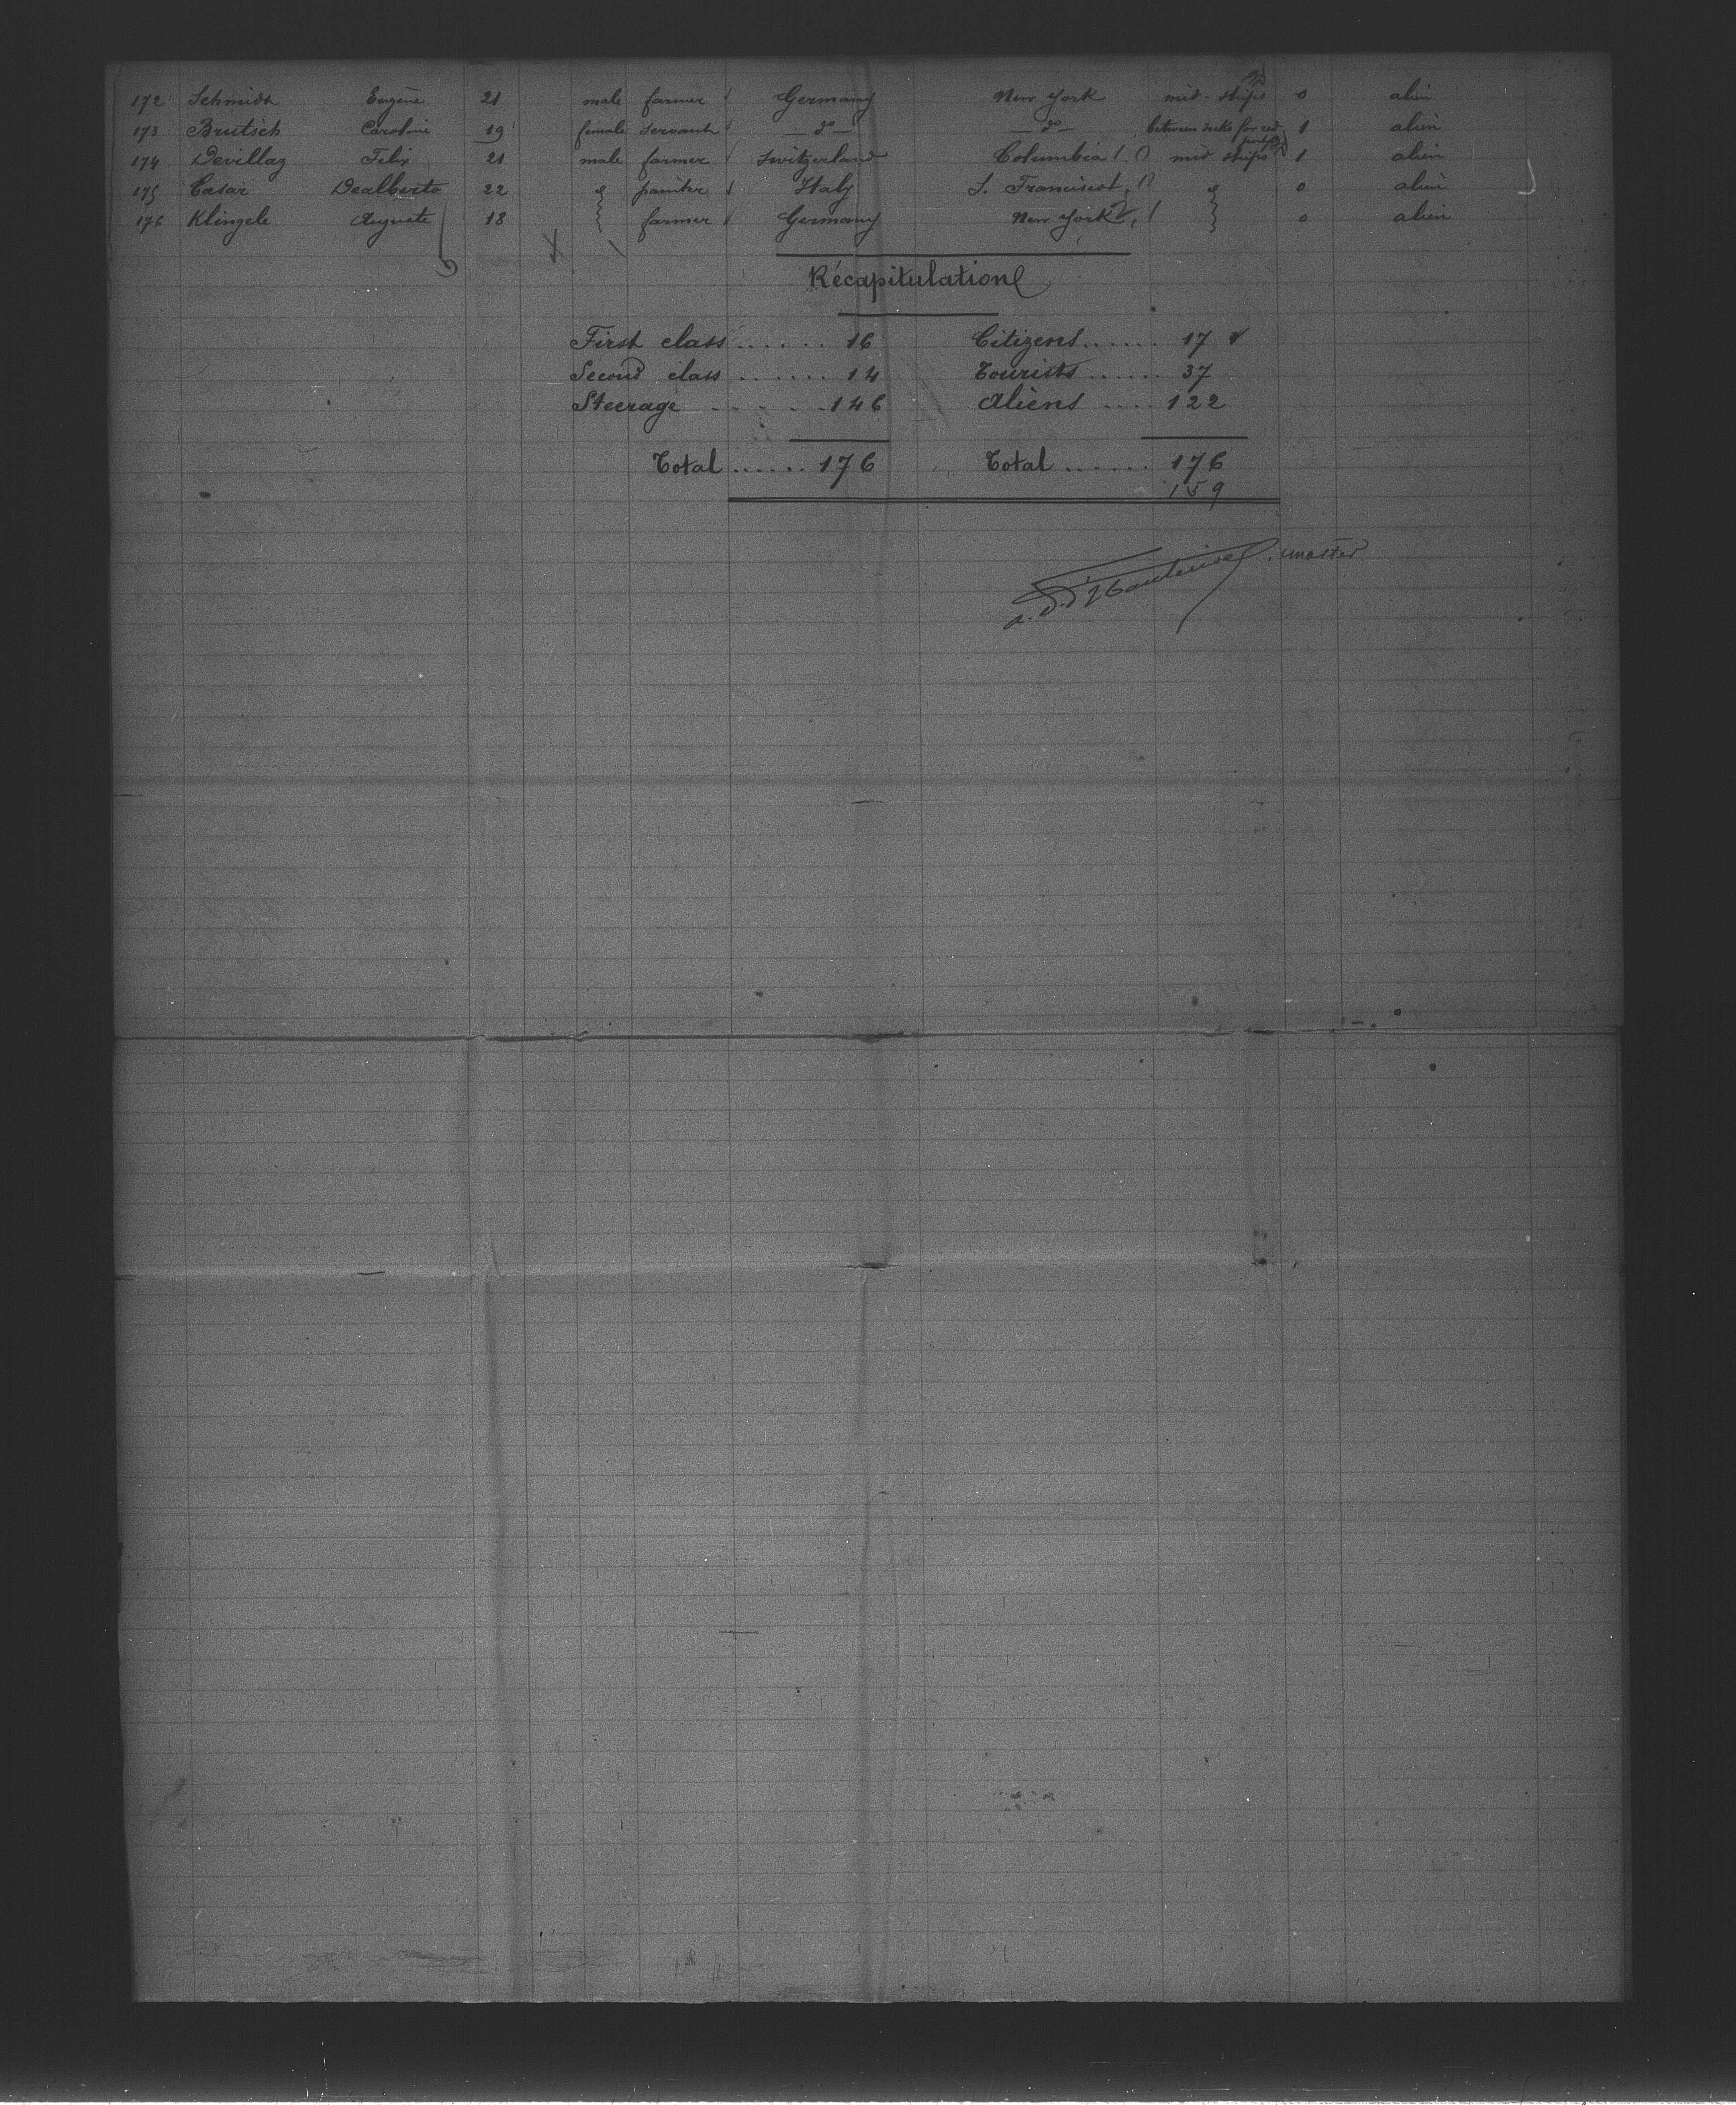 172 Schmidt Eugène 21 male farmer Germany New York mid-ships 0 alien
173 Brutsch Caroline 19 female servant — do — — do — between decks forwd 1 alien
174 Devillaz Felix 21 male farmer Switzerland Columbia mid ships 1 alien
175 Cæsar Dealberto 22 " painter Italy S. Francisco " 0 alien
176 Klingele Auguste 18 farmer Germany New York 0 alien
Récapitulation
First class ...... 16 Citizens ...... 17
Second class ...... 14 Tourists ...... 37
Steerage ...... 146 Aliens .... 122
Total ...... 176 Total ...... 176
159
master